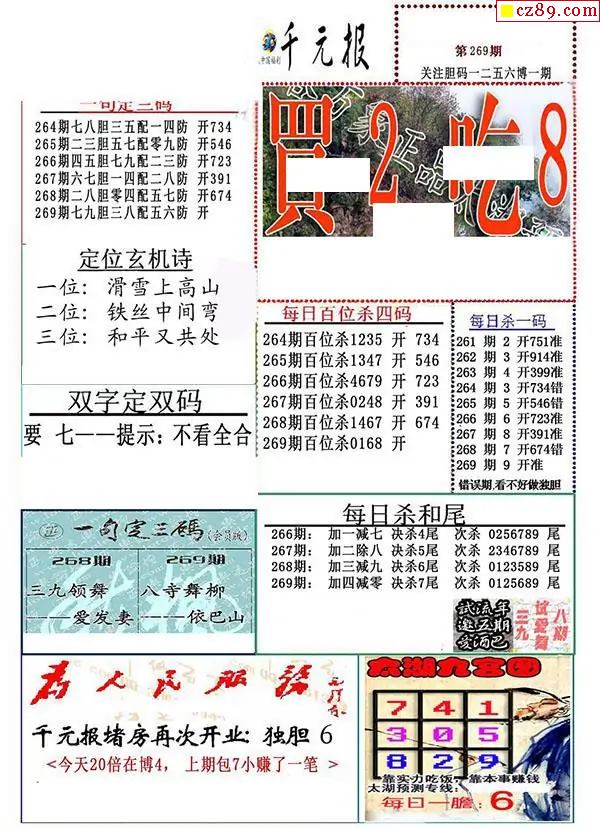 cz89.com
中国福利
千元报
第269期
关注胆码一二五六博一期
一句定三码
264期七八胆三五配一四防 开734
265期二三胆五七配零九防 开546
266期四五胆七九配二三防 开723
267期六七胆一四配二八防 开391
268期二八胆零四配五七防 开674
269期七九胆三八配五六防 开
買 2 吃 8
定位玄机诗
一位: 滑雪上高山
二位: 铁丝中间弯
三位: 和平又共处
每日百位杀四码
264期百位杀1235 开 734
265期百位杀1347 开 546
266期百位杀4679 开 723
267期百位杀0248 开 391
268期百位杀1467 开 674
269期百位杀0168 开
每日杀一码
261 期 2 开751准
262 期 3 开914准
263 期 4 开399准
264 期 3 开734错
265 期 5 开546错
266 期 6 开723准
267 期 8 开391准
268 期 7 开674错
269 期 9 开准
错误期,看不好做独胆
双字定双码
要 七——提示: 不看全合
一句定三碼(会员版)
268期
三九领舞
——爱发妻
269期
八寺舞柳
——依巴山
每日杀和尾
266期: 加一减七 决杀4尾 次杀 0256789 尾
267期: 加二除八 决杀5尾 次杀 2346789 尾
268期: 加三减九 决杀6尾 次杀 0123589 尾
269期: 加四减零 决杀7尾 次杀 0125689 尾
为人民服务
千元报堵房再次开业: 独胆 6
<今天20倍在博4, 上期包7小赚了一笔 >
太湖九宫图
7 4 1
3 0 5
8 2 9
靠实力吃饭, 靠本事赚钱
太湖预测专线:
每日一胆: 6